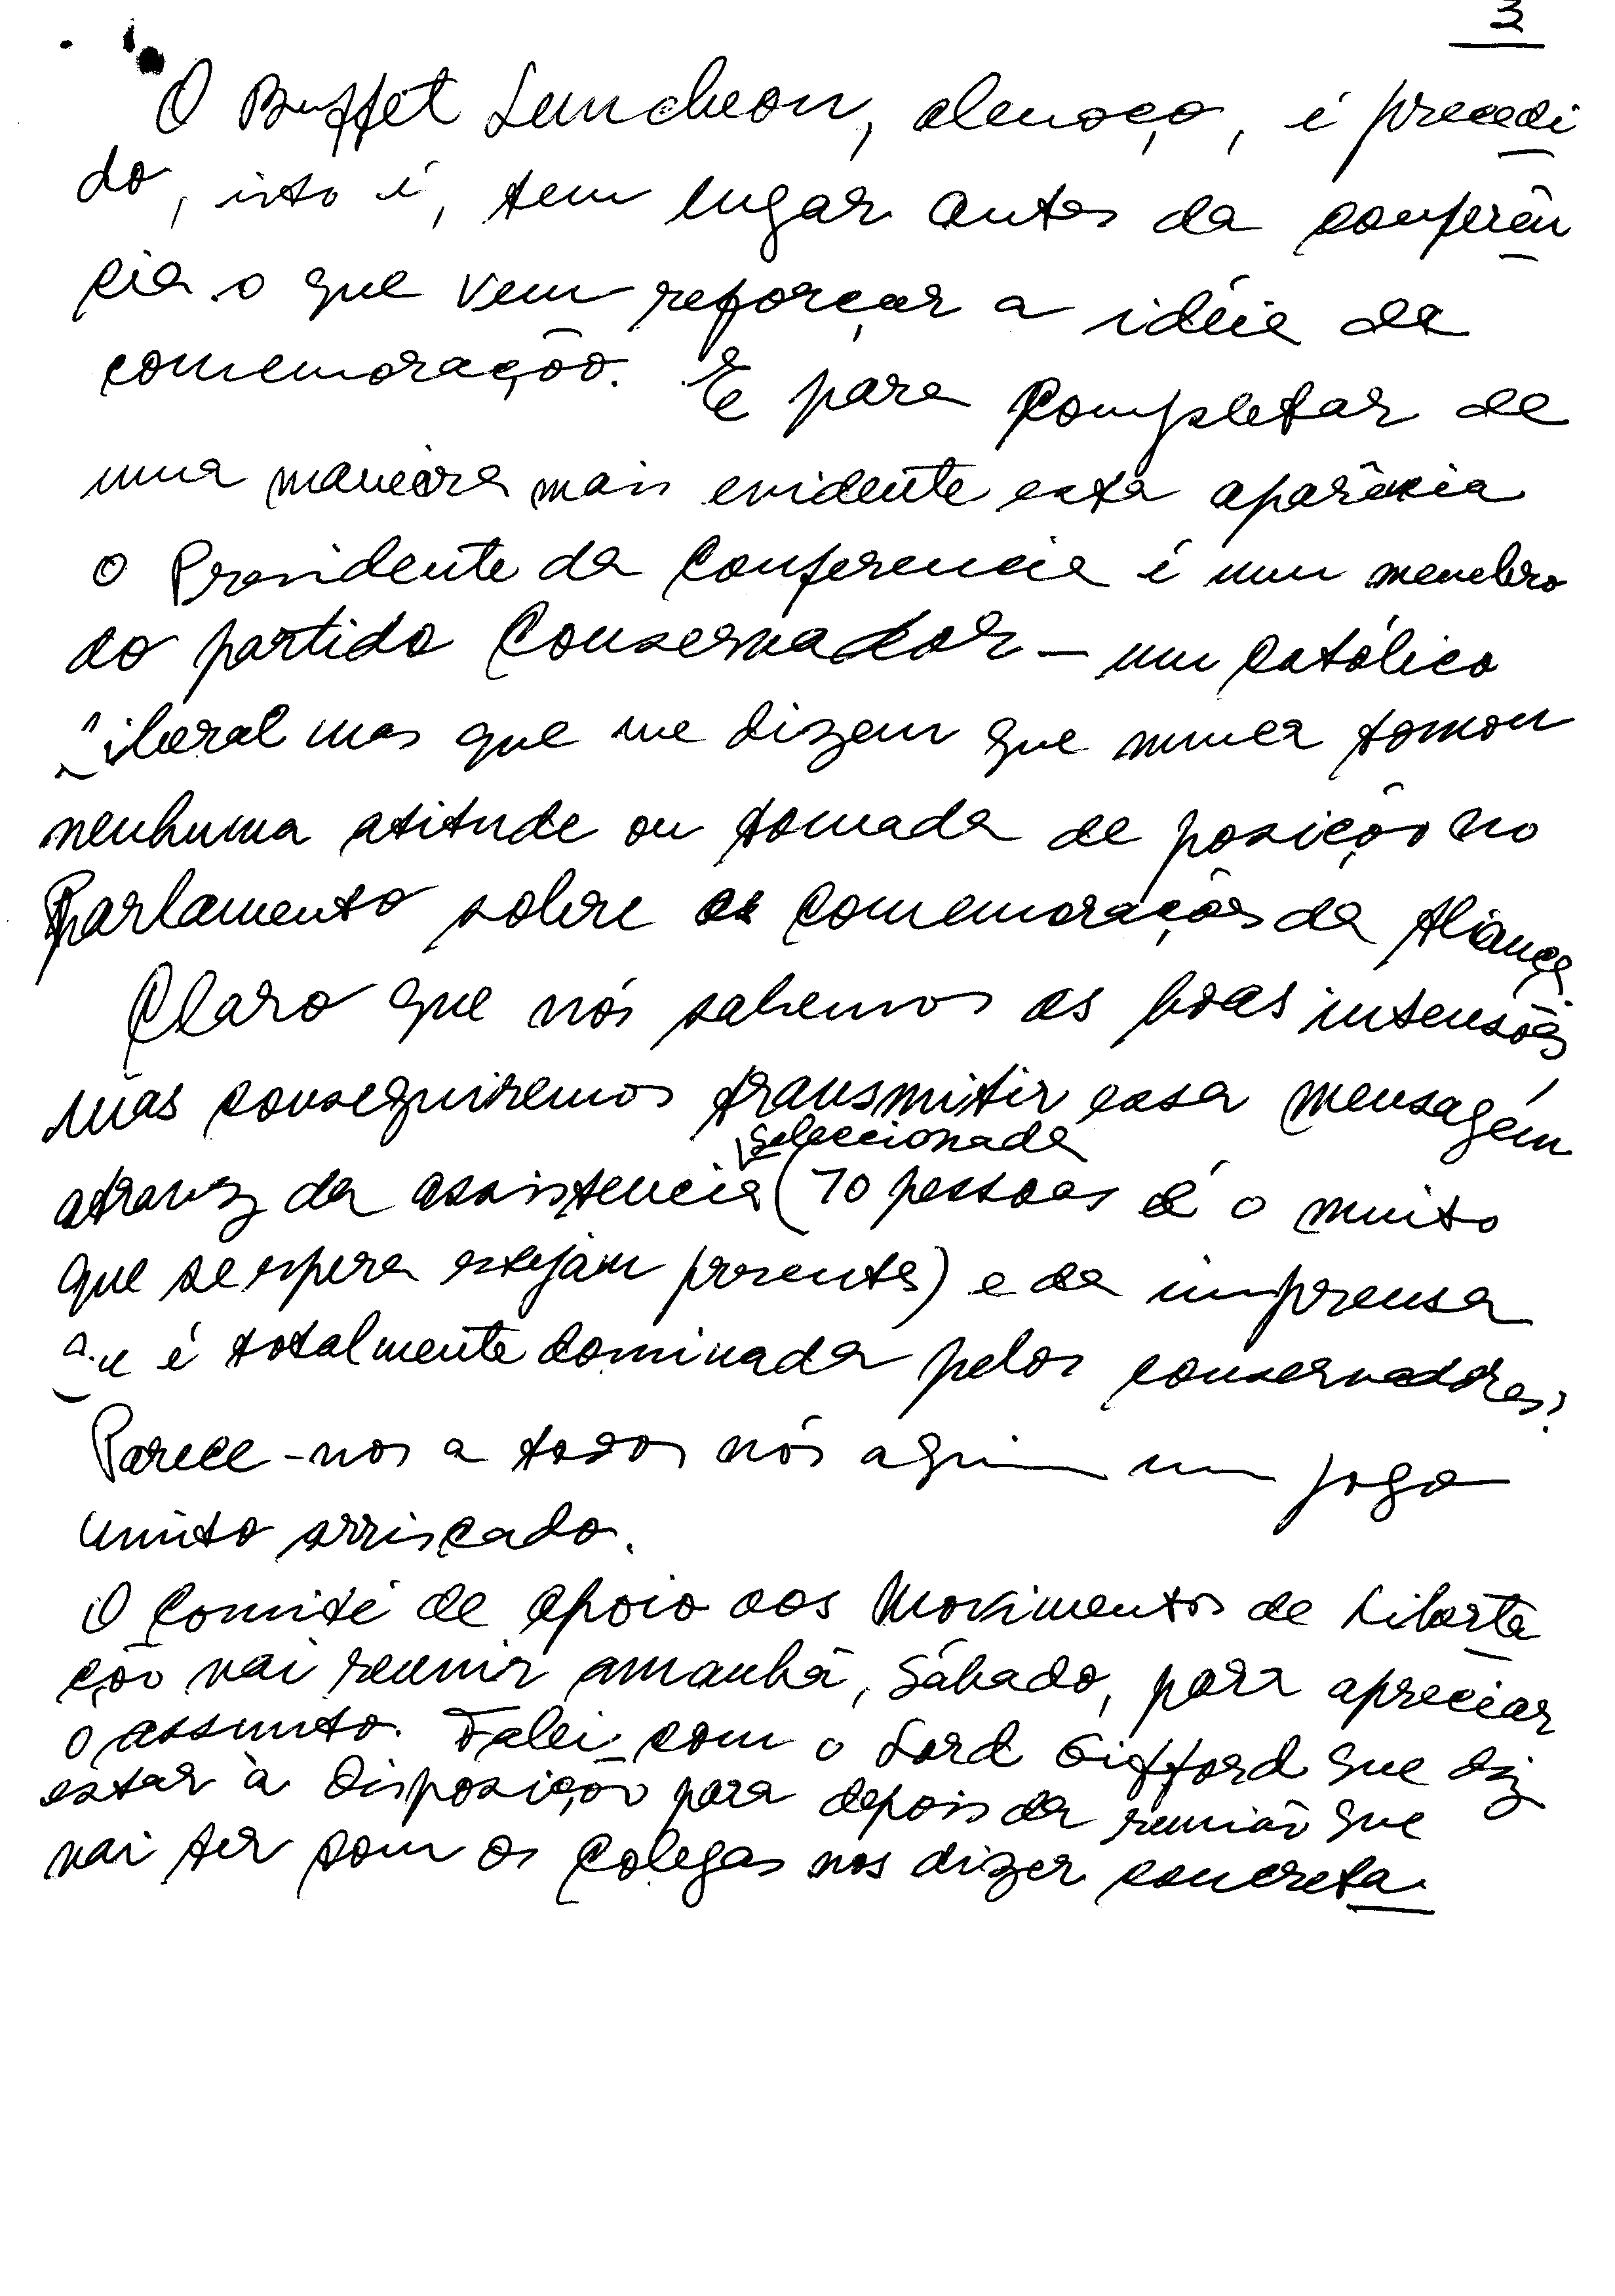 3
O Buffet Luncheon, almoço, é precedi
do, isto é, tem lugar antes da conferên
cia o que vem reforçar a idéia da
comemoração. E para completar de
uma maneira mais evidente esta aparência
o Presidente da Conferencia é um membro
do partido Conservador – um católico
liberal mas que me dizem que nunca tomou
nenhuma atitude ou tomada de posição no
Parlamento sobre as comemorações da Aliança
Claro que nós sabemos as boas intensões
mas conseguiremos transmitir essa mensagém
seleccionada
atravez da assistencia (70 pessoas é o muito
que se espera estejam presentes) e da imprensa
que é totalmente dominada pelos conservadores?
Parece-nos a todos nós aqui um jogo
muito arriscado.
O Comité de apoio aos Movimentos de Liberta
ção vai reunir amanhã, Sábado, para apreciar
o assunto. Falei com o Lord Gifford que diz
estar à disposição para depois da reunião que
vai ter com os colegas nos dizer concreta